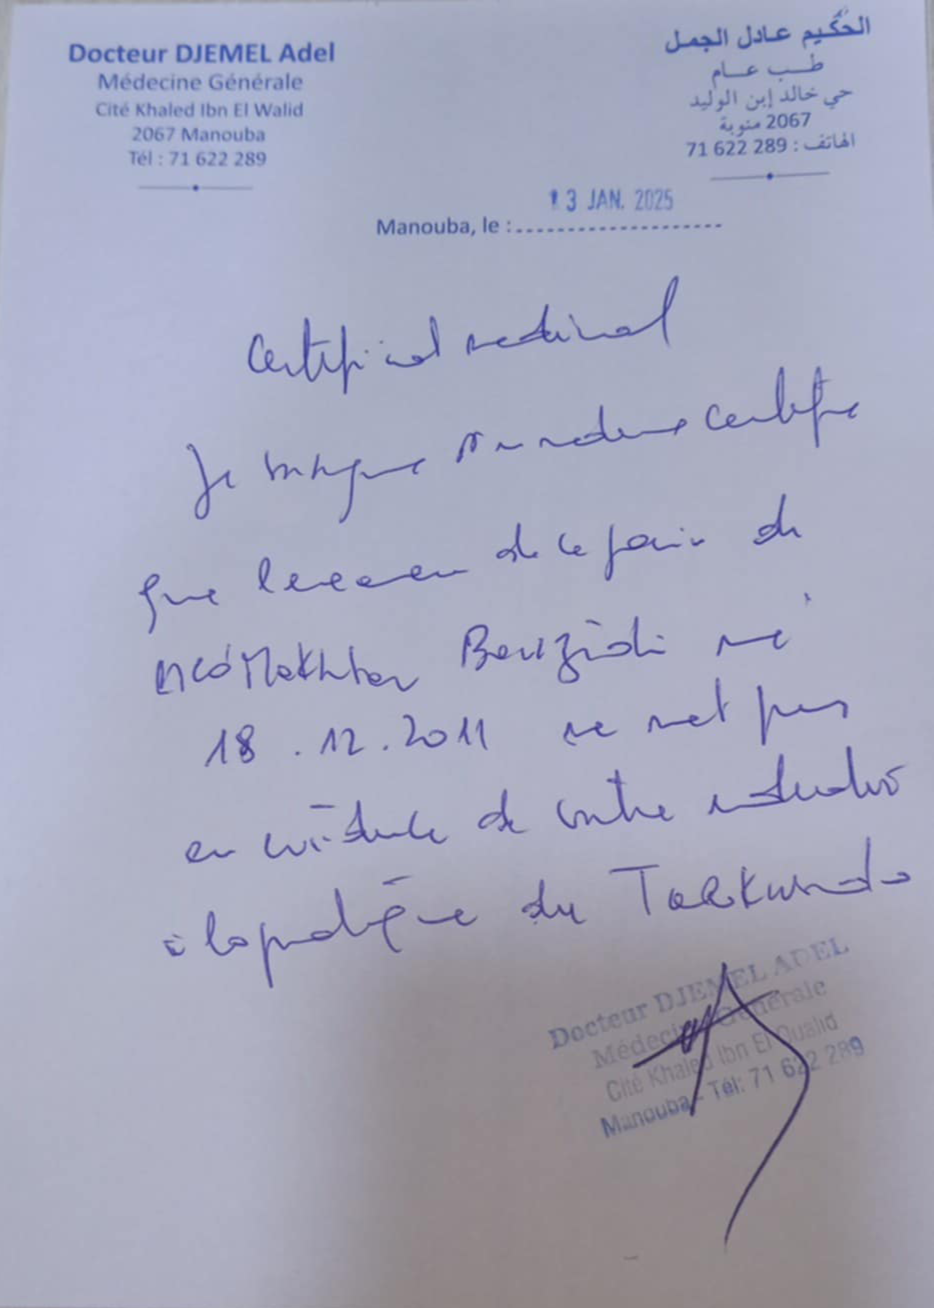 Docteur DJEMEL Adel
Médecine Générale
Cité Khaled Ibn El Walid
2067 Manouba
Tél : 71 622 289
الحكيم عادل الجمل
طب عام
حي خالد إبن الوليد
2067 منوبة
الهاتف : 289 622 71
13 JAN. 2025
Manouba, le :
Certificat medical
Je soussigné certifie
que l'examen de ce jour de
Med Mokhtar Bouzidi né
18.12.2011 ne met pas
en évidence de contre indication
à la pratique du Taekwondo
Docteur DJEMEL ADEL
Médecine Générale
Cité Khaled Ibn El Oualid
Manouba - Tél: 71 622 289